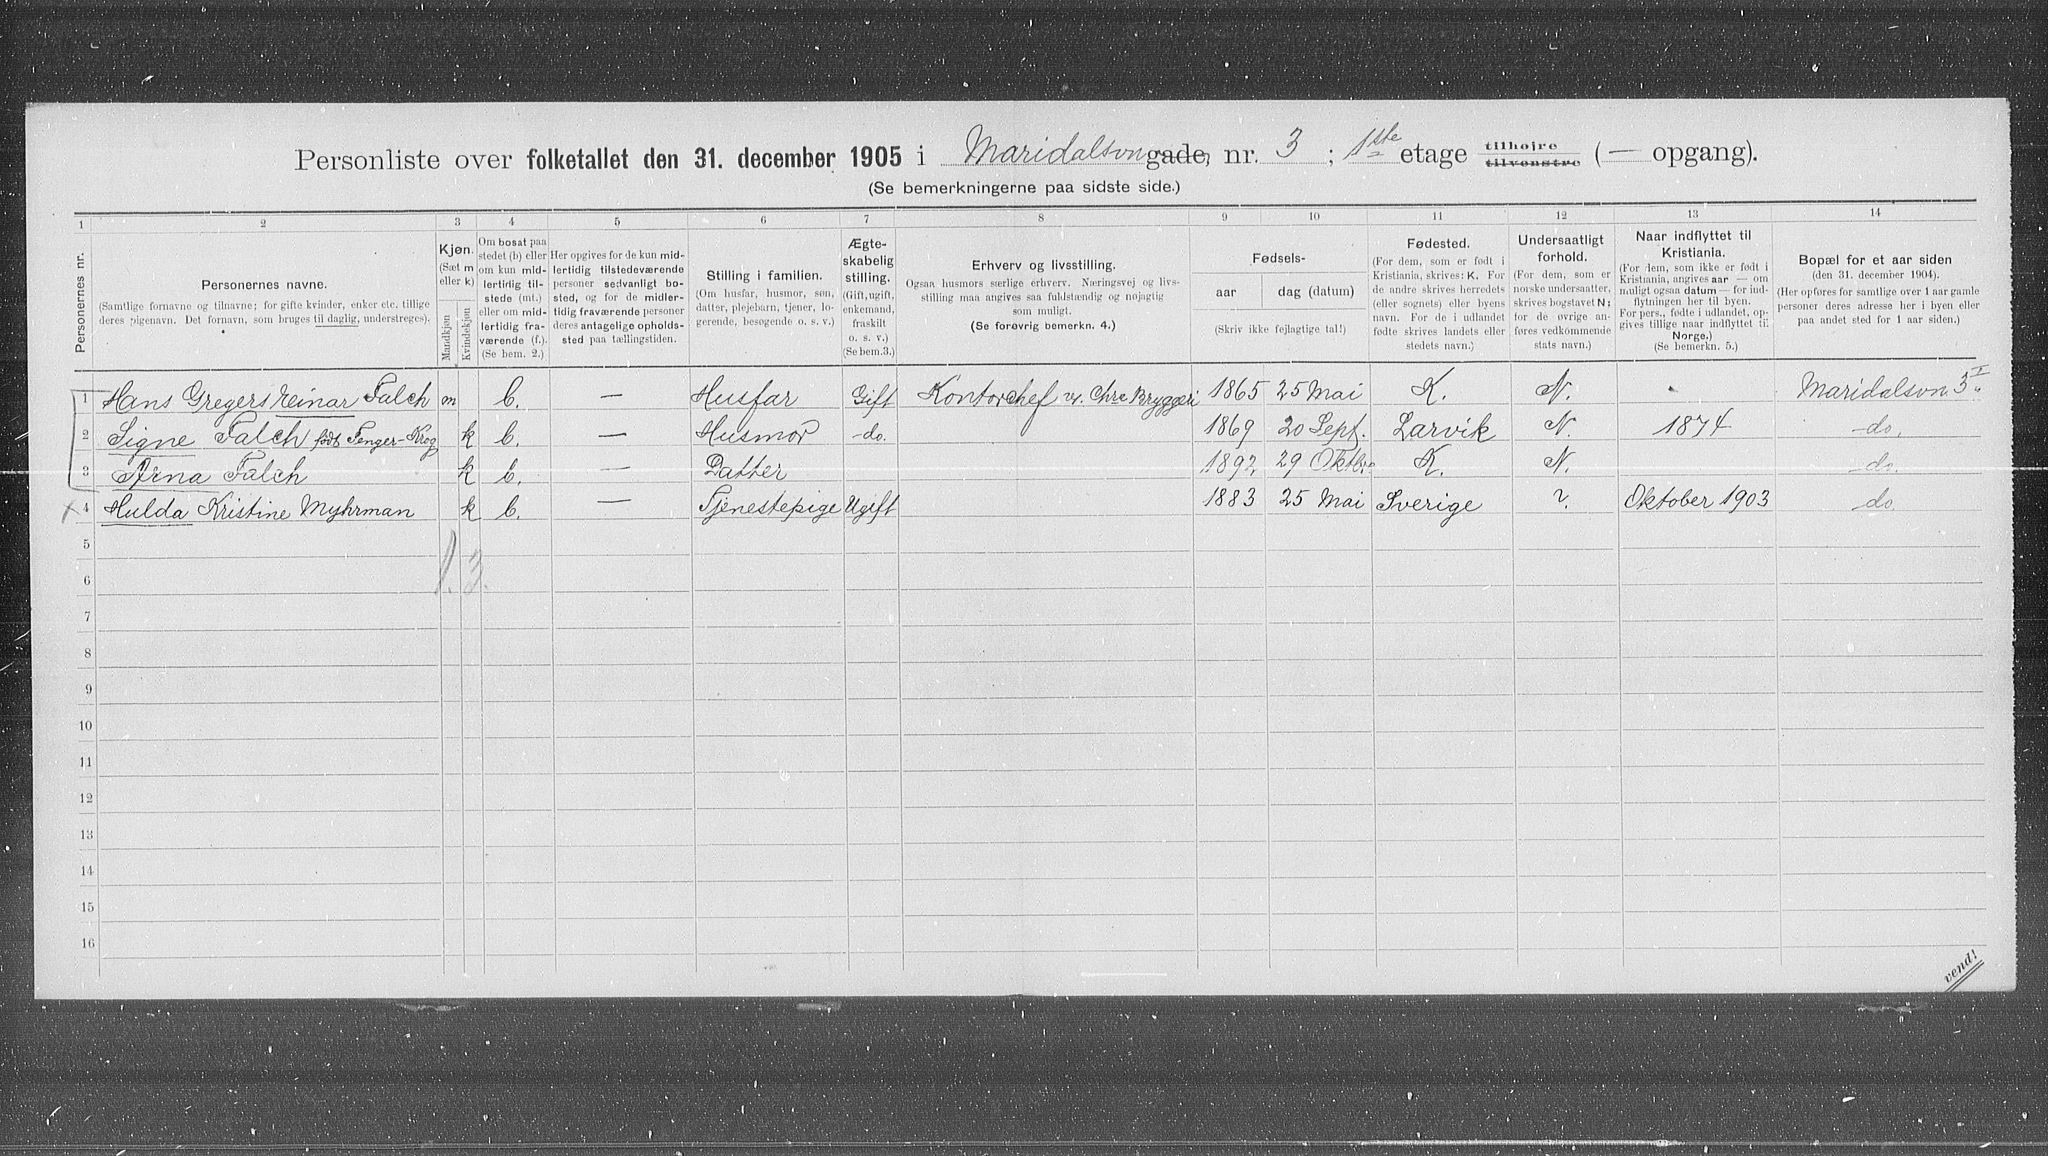 Personliste over folketallet den 31. december 1905 i Maridalsvn gade, nr. 3 ; 1ste etage tilhøjre tilvenstre (— opgang).
(Se bemerkningerne paa sidste side.)
1 2 3 4 5 6 7 8 9 10 11 12 13 14
Personernes nr.
Personernes navne.
(Samtlige fornavne og tilnavne; for gifte kvinder, enker etc. tillige
deres pigenavn. Det fornavn, som bruges til daglig, understreges).
Kjøn.
(Sæt m
eller k)
Mandkjøn
Kvindekjøn
Om bosat paa
stedet (b) eller
om kun mid-
lertidig til-
stede (mt.)
eller om mid-
lertidig fra-
værende (f.).
(Se bem. 2.)
Her opgives for de kun mid-
lertidig tilstedeværende
personer sedvanligt bo-
sted, og for de midler-
tidig fraværende personer
deres antagelige opholds-
sted paa tællingstiden.
Stilling i familien.
(Om husfar, husmor, søn,
datter, plejebarn, tjener, lo-
gerende, besøgende o. s. v.)
Ægte-
skabelig
stilling.
(Gift, ugift,
enkemand,
fraskilt
o. s. v.)
(Se bem.3.)
Erhverv og livsstilling.
Ogsaa husmors særlige erhverv. Næringsvej og livs-
stilling maa angives saa fuldstændig og nøjagtig
som muligt.
(Se forøvrig bemerkn. 4.)
Fødsels-
aar
dag (datum)
(Skriv ikke fejlagtige tal!)
Fødested.
(For dem, som er født i
Kristiania, skrives: K. For
de andre skrives herredets
(eller sognets) eller byens
navn. For de i udlandet
fødte skrives landets eller
stedets navn.)
Undersaatligt
forhold.
(For dem, som er
norske undersaatter,
skrives bogstavet N;
for de øvrige an-
føres vedkommende
stats navn.)
Naar indflyttet til
Kristiania.
(For dem, som ikke er født i
Kristiania, angives aar — om
muligt ogsaa datum — for ind-
flytningen her til byen.
For pers., fødte i udlandet, op-
gives tillige naar indflyttet til
Norge.)
(Se bemerkn. 5.)
Bopæl for et aar siden
(den 31. december 1904).
(Her opføres for samtlige over 1 aar gamle
personer deres adresse her i byen eller
paa andet sted for 1 aar siden.)
1 Hans Gregers Einar Falch m b. — Husfar Gift Kontorchef v. Chra Bryggeri 1865 25 Mai K. N. Maridalsvn. 3 I
2 Signe Falch født Fenger-Krog k b. — Husmor do. 1869 20 Sept. Larvik N. 1874 do.
3 Arna Falch k b. — Datter 1892 29 Oktbr K. N. do.
4 Hulda Kristine Myhrman k b. — Tjenestepige Ugift 1883 25 Mai Sverige ? Oktober 1903 do.
5
1. 3.
6
7
8
9
10
11
12
13
14
15
16
vend!